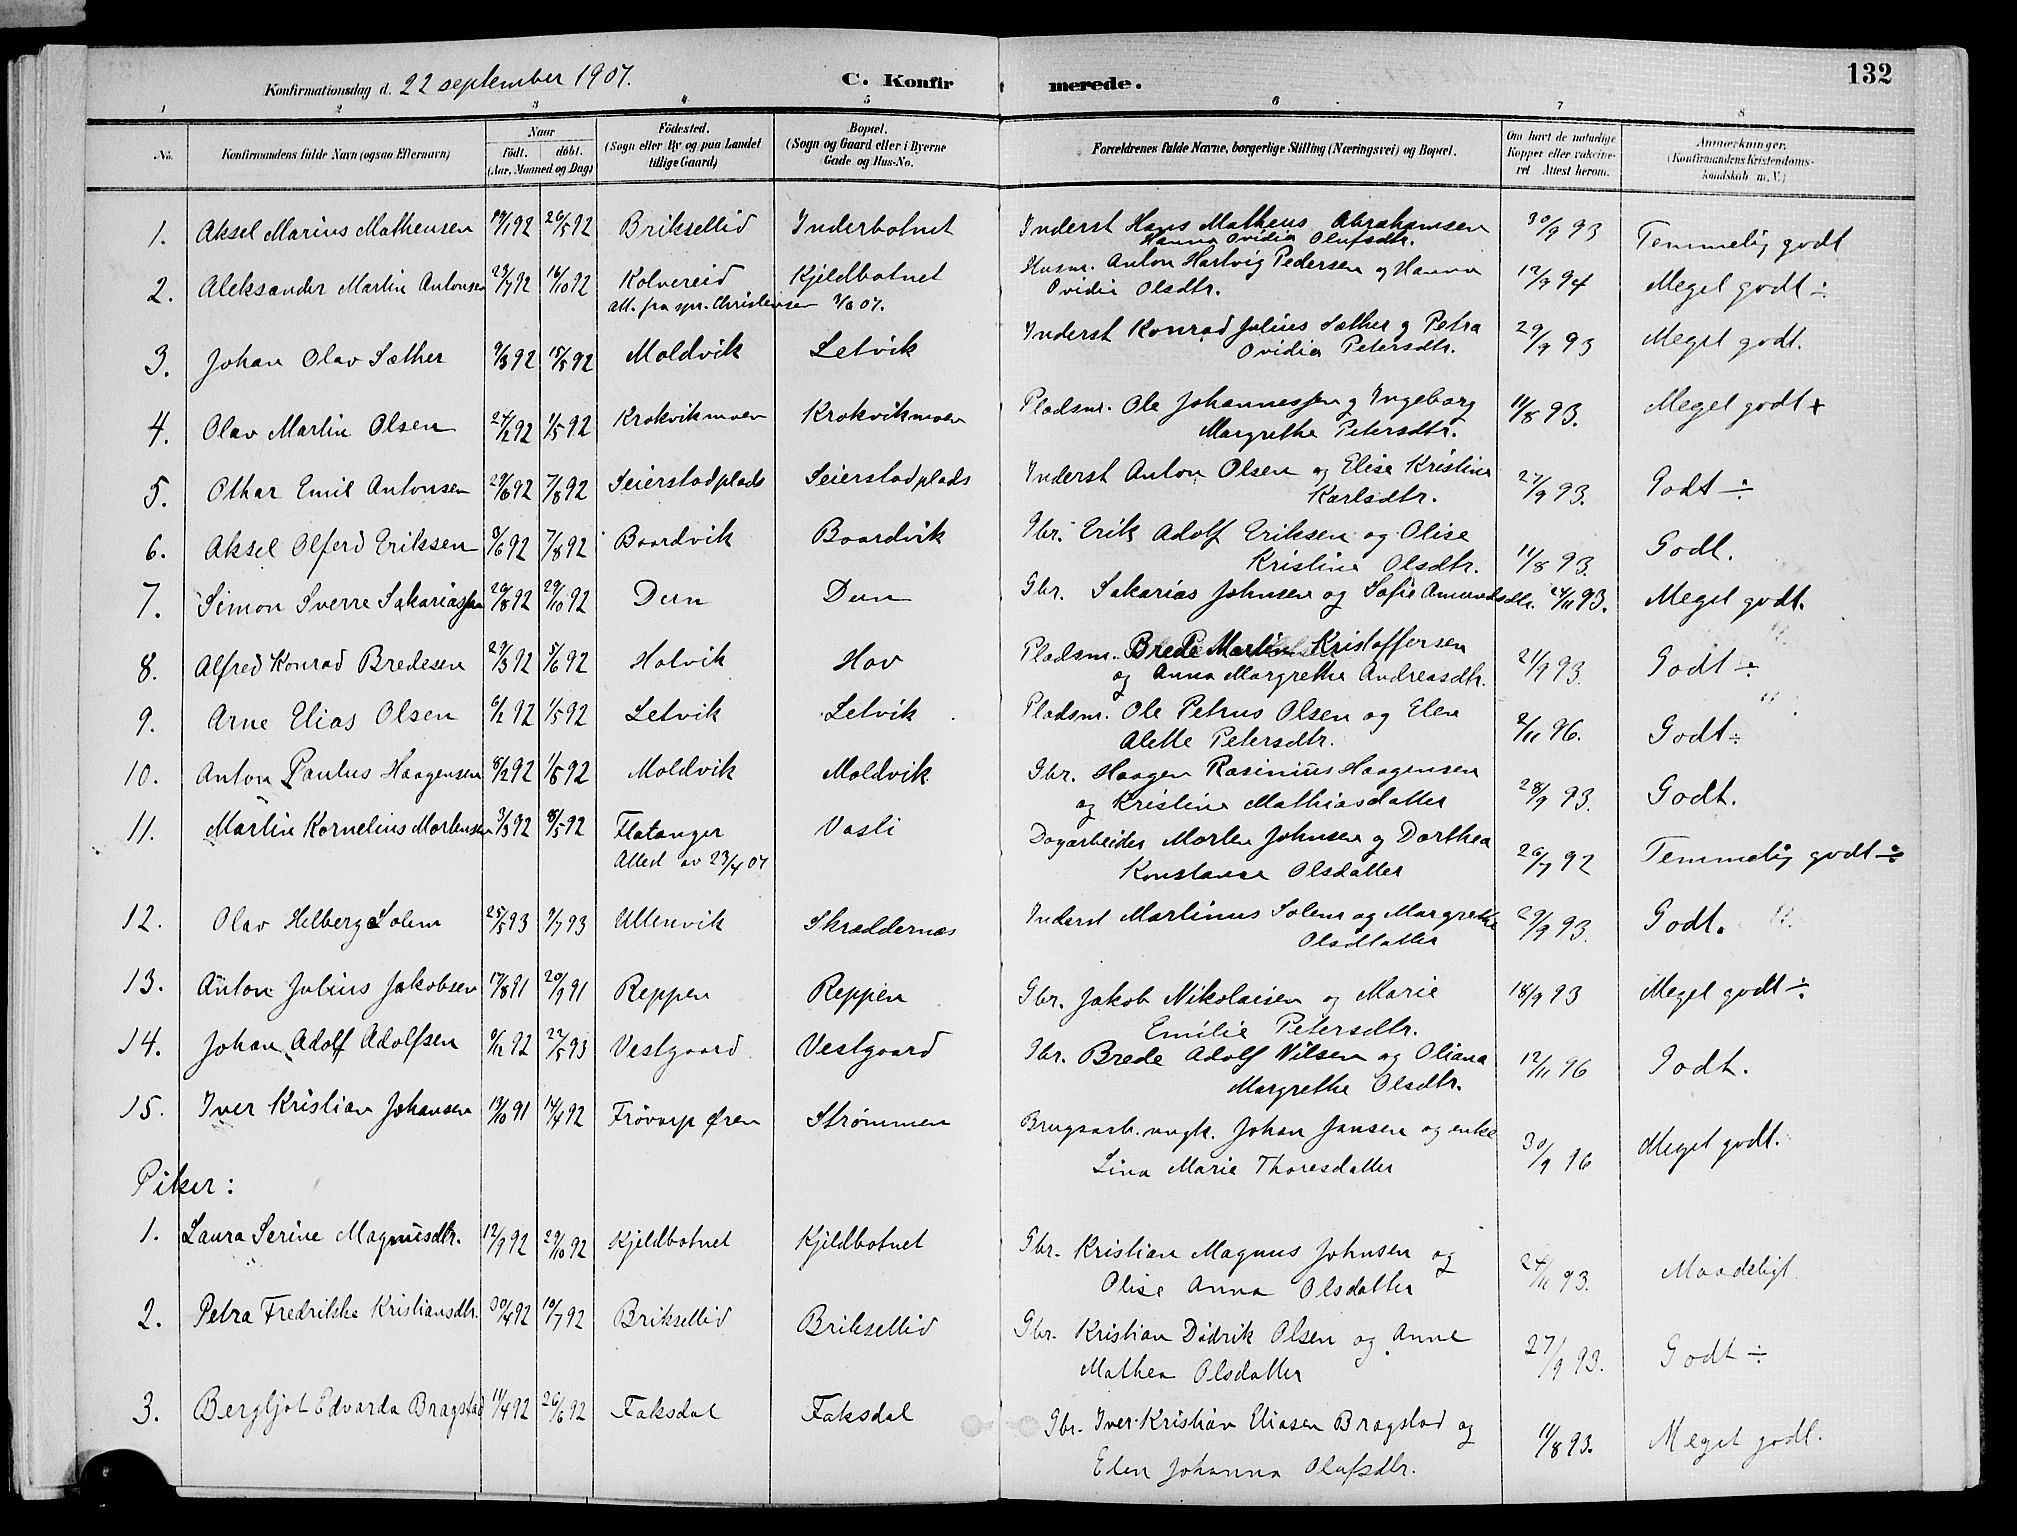 132
Konfirmationsdag d. 22 september 1907.
C. Konfirmerede.
1 2 3 4 5 6 7 8
No. Konfirmandens fulde Navn (ogsaa Efternavn) Naar født. døbt. (Aar, Maaned og Dag) Fødested. (Sogn eller By og paa Landet tillige Gaard) Bopæl. (Sogn og Gaard eller i Byerne Gade og Hus-No. Forældrenes fulde Navne, borgerlige Stilling (Næringsvei) og Bopæl. Om havt de naturlige Kopper eller vaksineret Attest herom. Anmærkninger. (Konfirmandens Kristendomskundskab m. V.)
1. Aksel Marius Matheusen 19/1 92 26/5 92 Briksellid Inderbotnet Inderst Hans Matheus Abrahamsen 30/9 93 Temmelig godt
Hanna Ovidia Olufsdtr.
2. Aleksander Martin Antonsen 29/7 92 16/10 92 Kolvereid Kjeldbotnet Husm. Anton Hartvig Pedersen og Hanna 12/9 94 Meget godt ÷
att. fra spr. Christensen 3/6 07. Ovidia Olsdtr.
3. Johan Olav Sæther 9/3 92 15/5 92 Moldvik Letvik Inderst Konrad Julius Sæther g Petra 29/9 93 Meget godt.
Ovidia Petersdtr.
4. Olav Martin Olsen 24/2 92 1/5 92 Krokvikmoen Krokvikmoen Pladsm. Ole Johannessen g Ingeborg 11/8 93. Meget godt +
Margrethe Petersdtr.
5. Othar Emil Antonsen 29/6 92 7/8 92 Seierstadplads Seierstadplads Inderst Anton Olsen og Elise Kristine 27/9 93. Godt ÷
Karlsdtr.
6. Aksel Olferd Eriksen 8/6 92 7/8 92 Baardvik Baardvik Gbr. Erik Adolf Eriksen og Olise 11/8 93. Godt.
Kristine Olsdtr.
7. Simon Sverre Sakariassen 20/8 92 29/10 92 Dun Dun Gbr. Sakarias Johnsen og Sofie Amundsdtr. 24/11 93. Meget godt.
8. Alfred Konrad Bredesen 29/3 92 5/6 92 Halvik Hov Pladsm. Brede Martin Kristoffersen 21/9 93. Godt ÷
og Anna Margrethe Andreasdtr.
9. Arne Elias Olsen 6/2 92 1/5 92 Letvik Letvik Pladsm. Ole Petrus Olsen og Elen 2/11 96. Godt ÷
Alette Petersdtr.
10. Anton Paulus Haagensen 8/2 92 1/5 92 Moldvik Moldvik Gbr. Haagen Rasinius Haagensen 28/9 93. Godt.
og Kristine Mathiasdatter
11. Martin Kornelius Mortensen 3/3 92 8/5 92 Flatanger Vasli Dagarbeider Morten Johnsen g Dorthea 26/7 92 Temmelig godt ÷
Attest av 23/4 07 Konstanse Olsdatter
12. Olav Helberg Solem 25/5 93 9/7 93 Uttenvik Skræddernæs Inderst Martinus Solem og Margrethe 29/9 93. Godt.
Olsdatter
13. Anton Julius Jakobsen 17/8 91 20/9 91 Reppen Reppen Gbr. Jakob Nikolaisen og Marie 18/9 93 Meget godt ÷
Emilie Petersdtr.
14. Johan Adolf Adolfsen 9/12 92 22/5 93 Vestgaard Vestgaard Gbr. Brede Adolf Nilsen og Oliana 12/11 96 Godt.
Margrethe Olsdtr.
15. Iver Kristian Johansen 19/10 91 14/4 92 Frøvarp Øren Strømmen Brugsarb. ungk. Johan Jansen og enke 30/9 96 Meget godt.
Lina Marie Thoresdatter
Piker:
1. Laura Serine Magnusdtr. 12/9 92 29/10 92 Kjeldbotnet Kjeldbotnet Gbr. Kristian Magnus Johnsen og 24/11 93. Maadeligt
Olise Anna Olsdatter
2. Petra Fredrikke Kristiansdtr. 30/4 92 10/7 92 Briksellid Briksellid Gbr. Kristian Didrik Olsen og Anne 27/9 93. Godt ÷
Mathea Olsdatter
3. Bergljot Edvarda Bragstad 11/4 92 26/6 92 Faksdal Faksdal Gbr. Iver Kristian Eliasen Bragstad og 11/8 93. Meget godt.
Elen Johanna Olufsdtr.